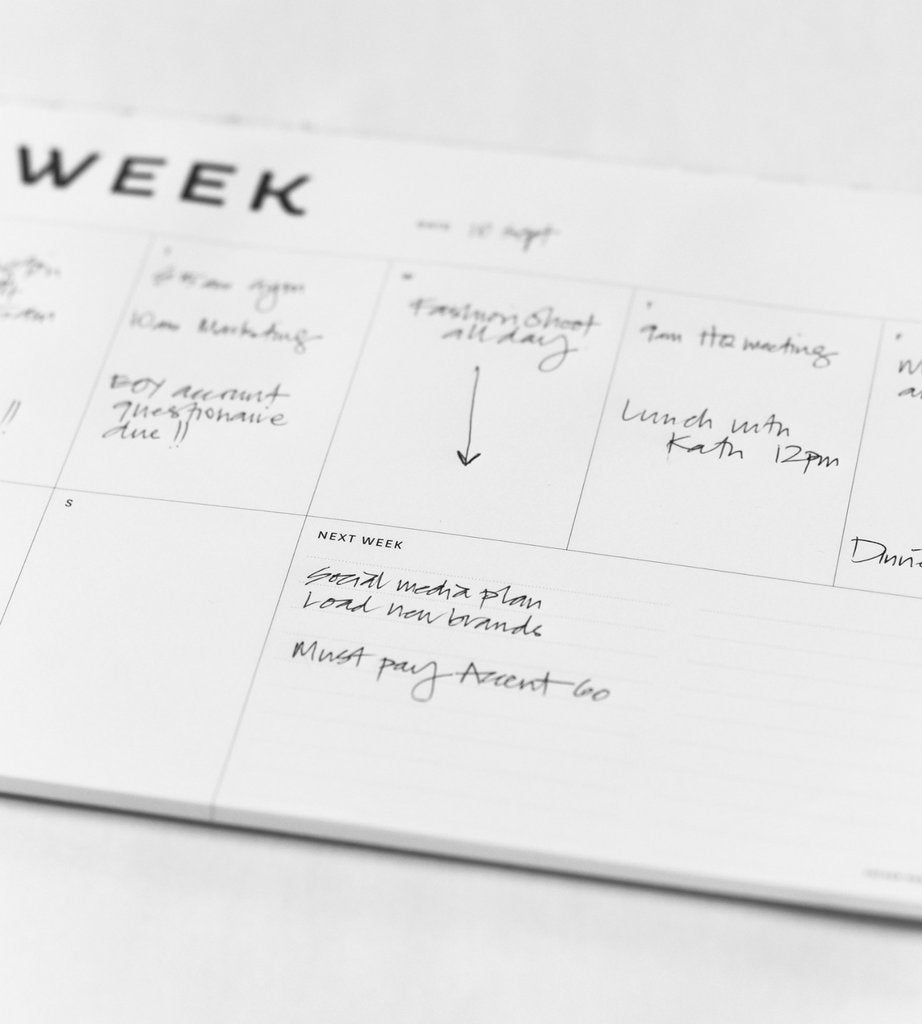 WEEK
10 Sept
10am Marketing
EOY account
questionaire
due !!
Fashion Shoot
all day
9am HQ meeting
Lunch with
Kath 12pm
S
NEXT WEEK
Social media plan
Load new brands
Must pay Accent Go